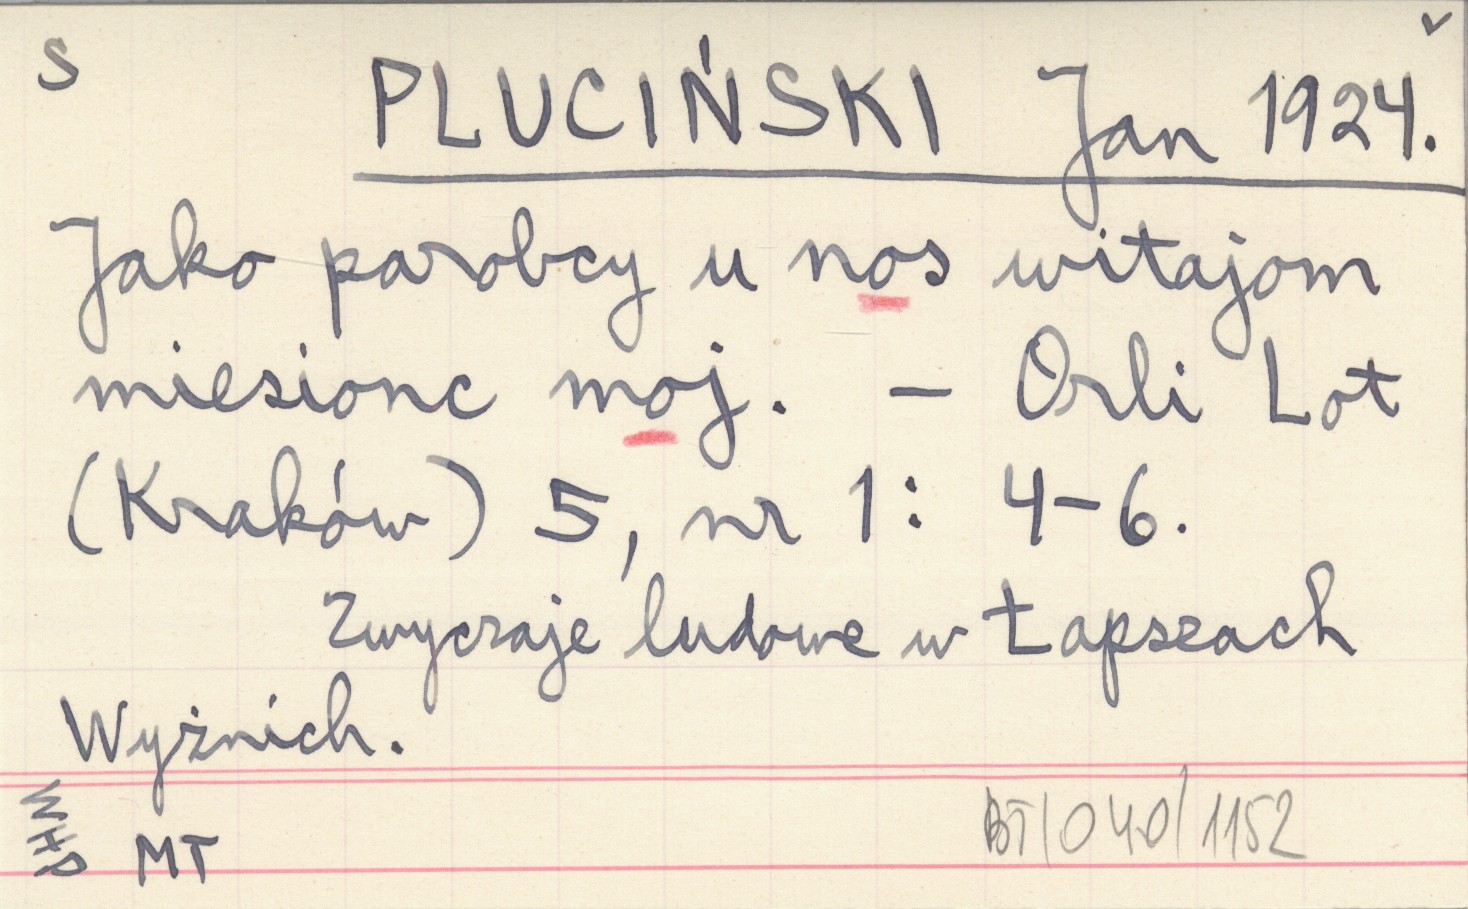 S
PLUCIŃSKI Jan 1924.
Jako parobcy u nos witajom
miesionc moj. – Orli Lot
(Kraków) 5, nr 1: 4–6.
Zwyczaje ludowe w Łapszach
Wyżnich.
WHP
MT
BT/040/1152